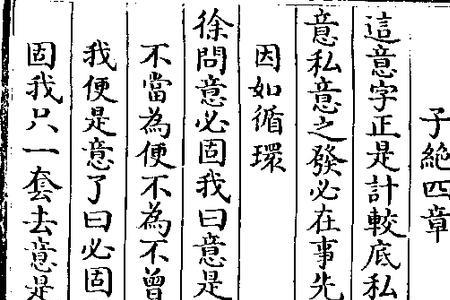 子絶四章
這意字正是計較底私
意私意之發必在事先
因如循環
徐問意必固我曰意是
不當為便不為不曾
我便是意了曰必固
固我只一套去意是